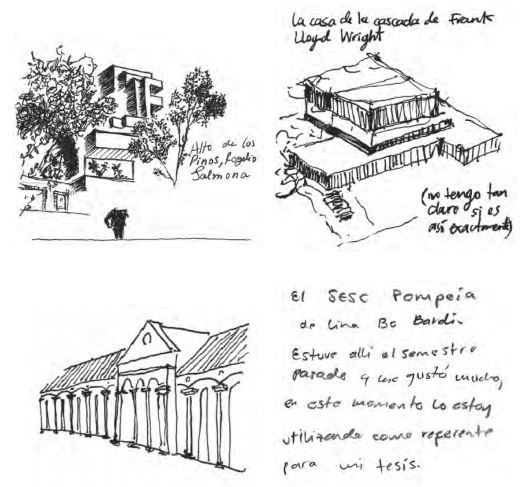 La casa de la cascada de Frank
Lloyd Wright
Alto de los
Pinos, Rogelio
Salmona
(no tengo tan
claro si es
así exactamente)
El SESC Pompeia
de Lina Bo Bardi.
Estuve allí el semestre
pasado y me gustó mucho,
en este momento lo estoy
utilizando como referente
para mi tesis.